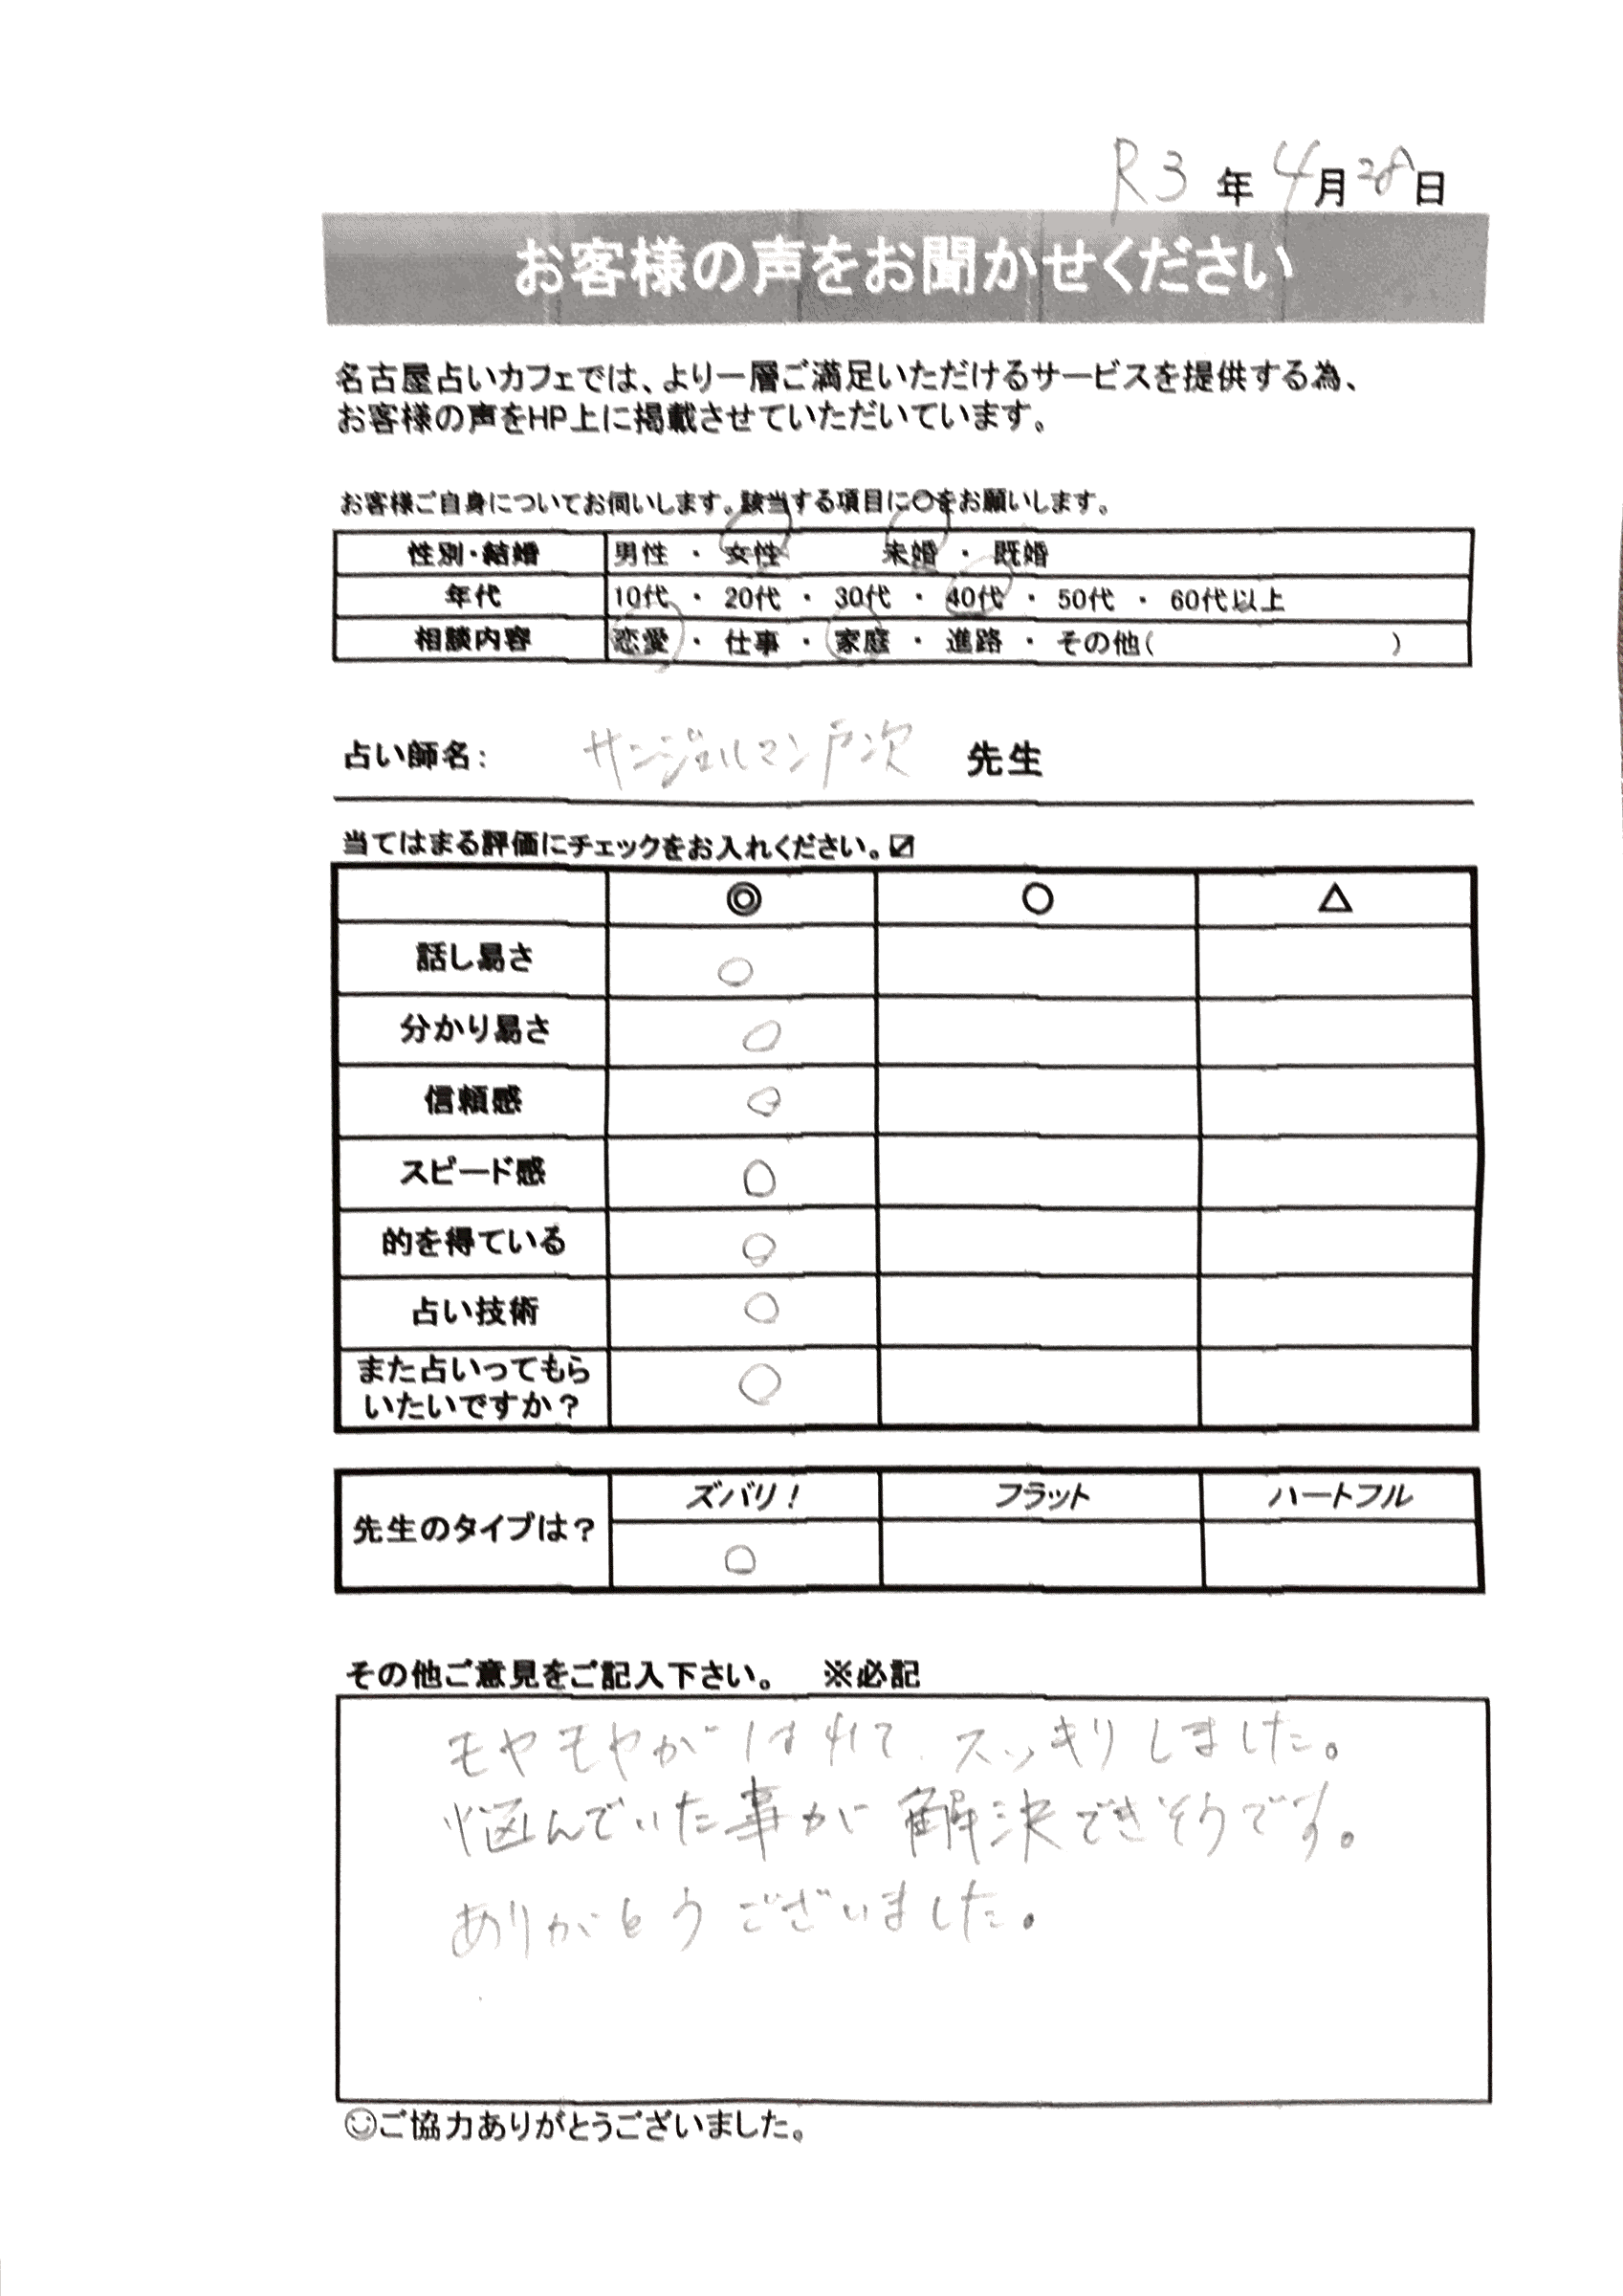 R3年4月28日
お客様の声をお聞かせください
名古屋占いカフェでは、より一層ご満足いただけるサービスを提供する為、
お客様の声をHP上に掲載させていただいています。
お客様ご自身についてお伺いします。該当する項目に〇をお願いします。
性別・結婚 男性 ・ 女性 未婚 ・ 既婚
年代 10代 ・ 20代 ・ 30代 ・ 40代 ・ 50代 ・ 60代以上
相談内容 恋愛 ・ 仕事 ・ 家庭 ・ 進路 ・ その他( )
占い師名: サンジェルマン戸次 先生
当てはまる評価にチェックをお入れください。☑
◎ ○ △
話し易さ ○
分かり易さ ○
信頼感 ○
スピード感 ○
的を得ている ○
占い技術 ○
また占いってもら
いたいですか? ○
ズバリ! フラット ハートフル
先生のタイプは? ○
その他ご意見をご記入下さい。 ※必記
モヤモヤがはれて、スッキリしました。
悩んでいた事が解決できそうです。
ありがとうございました。
☺ご協力ありがとうございました。